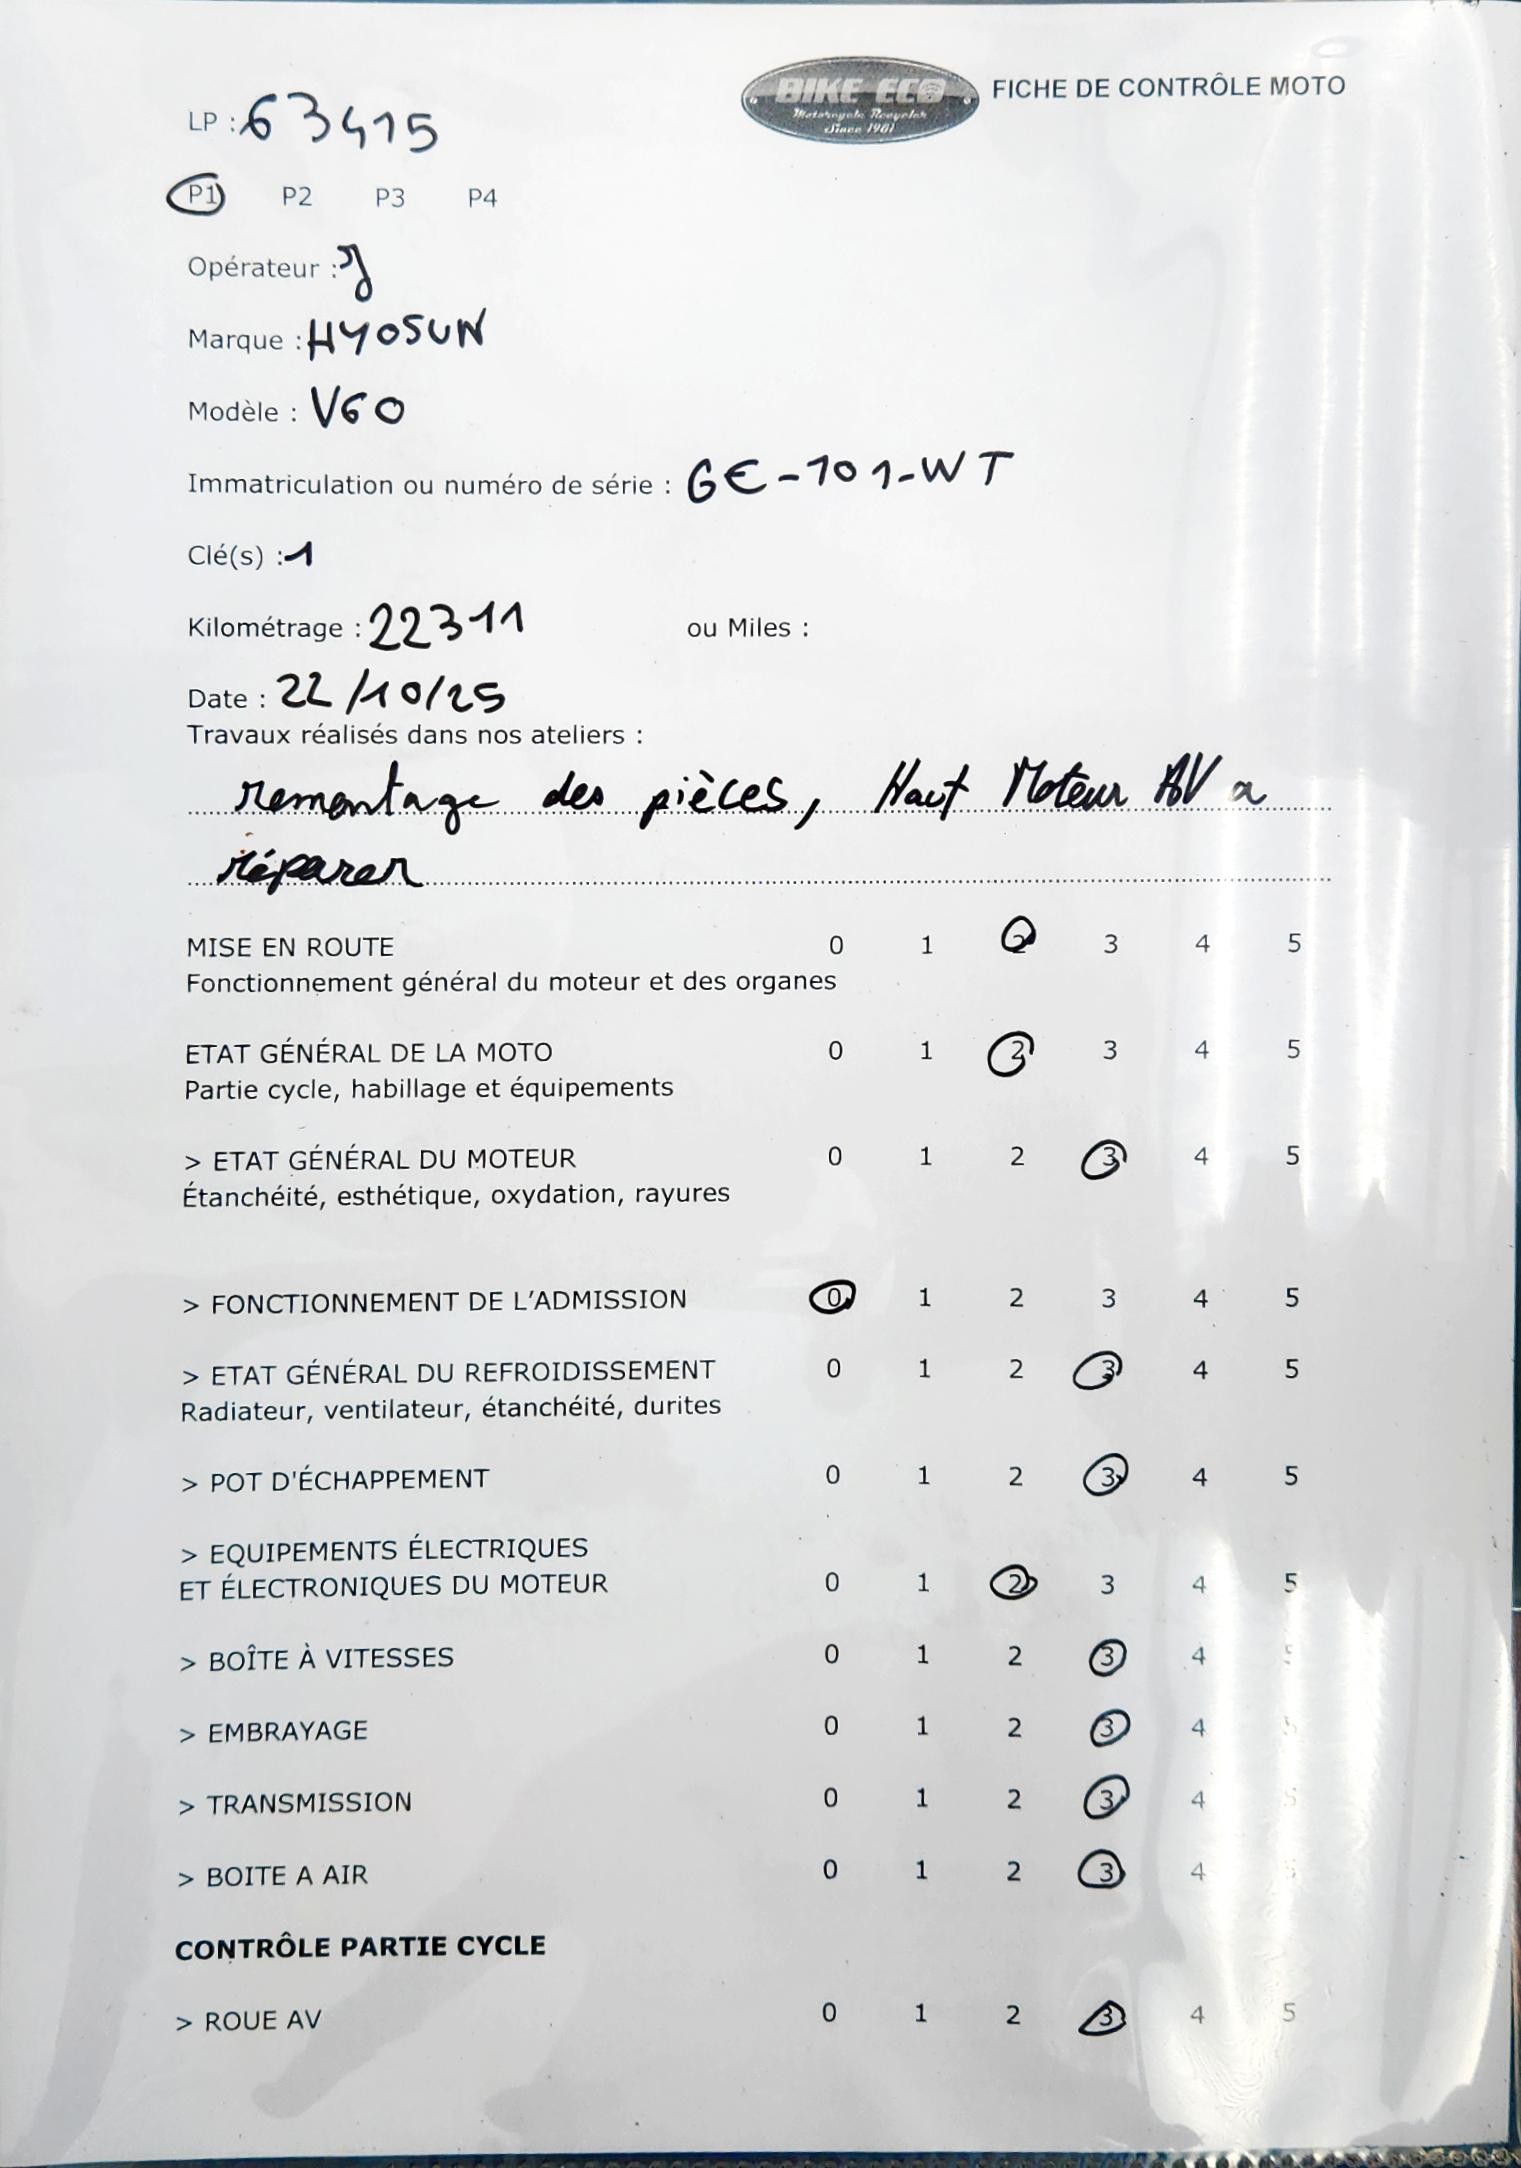 BIKE ECO
Motorcycle Recycler
Since 1961
FICHE DE CONTRÔLE MOTO
LP : 63415
P1 P2 P3 P4
Opérateur : J
Marque : HYOSUN
Modèle : V60
Immatriculation ou numéro de série : GE-101-WT
Clé(s) : 1
Kilométrage : 22311 ou Miles :
Date : 22/10/25
Travaux réalisés dans nos ateliers :
remontage des pièces, Haut Moteur AV a
réparer
MISE EN ROUTE 0 1 2 3 4 5
Fonctionnement général du moteur et des organes
ETAT GÉNÉRAL DE LA MOTO 0 1 2 3 4 5
Partie cycle, habillage et équipements
> ETAT GÉNÉRAL DU MOTEUR 0 1 2 3 4 5
Étanchéité, esthétique, oxydation, rayures
> FONCTIONNEMENT DE L'ADMISSION 0 1 2 3 4 5
> ETAT GÉNÉRAL DU REFROIDISSEMENT 0 1 2 3 4 5
Radiateur, ventilateur, étanchéité, durites
> POT D'ÉCHAPPEMENT 0 1 2 3 4 5
> EQUIPEMENTS ÉLECTRIQUES
ET ÉLECTRONIQUES DU MOTEUR 0 1 2 3 4 5
> BOÎTE À VITESSES 0 1 2 3 4 5
> EMBRAYAGE 0 1 2 3 4 5
> TRANSMISSION 0 1 2 3 4 5
> BOITE A AIR 0 1 2 3 4 5
CONTRÔLE PARTIE CYCLE
> ROUE AV 0 1 2 3 4 5